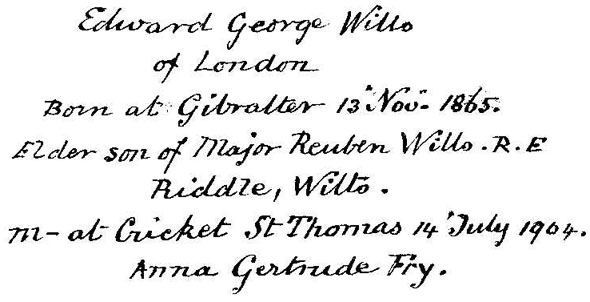 Edward George Wills
of London
Born at Gibralter 13" Nov. 1865.
Elder son of Major Reuben Wills. R.E
Riddle, Wilts.
m- at Cricket St Thomas 14' July 1904.
Anna Gertrude Fry.